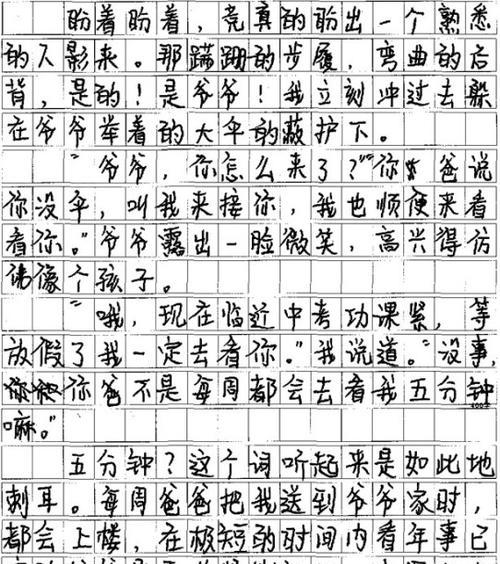 盼着盼着，竟真的盼出一个熟悉
的人影来。那蹒跚的步履，弯曲的后
背，是的！是爷爷！我立刻冲过去躲
在爷爷举着的大伞的蔽护下。
“爷爷，你怎么来了？”“你爸说
你没伞，叫我来接你，我也顺便来看
看你。”爷爷露出一脸微笑，高兴得仿
佛像个孩子。
“哦，现在临近中考功课紧，等
放假了我一定去看你。”我说道。“没事，
你爸不是每周都会去看我五分钟
嘛。”
五分钟？这个词听起来是如此地
刺耳。每周爸爸把我送到爷爷家时，
都会上楼，在极短的时间内看年事已